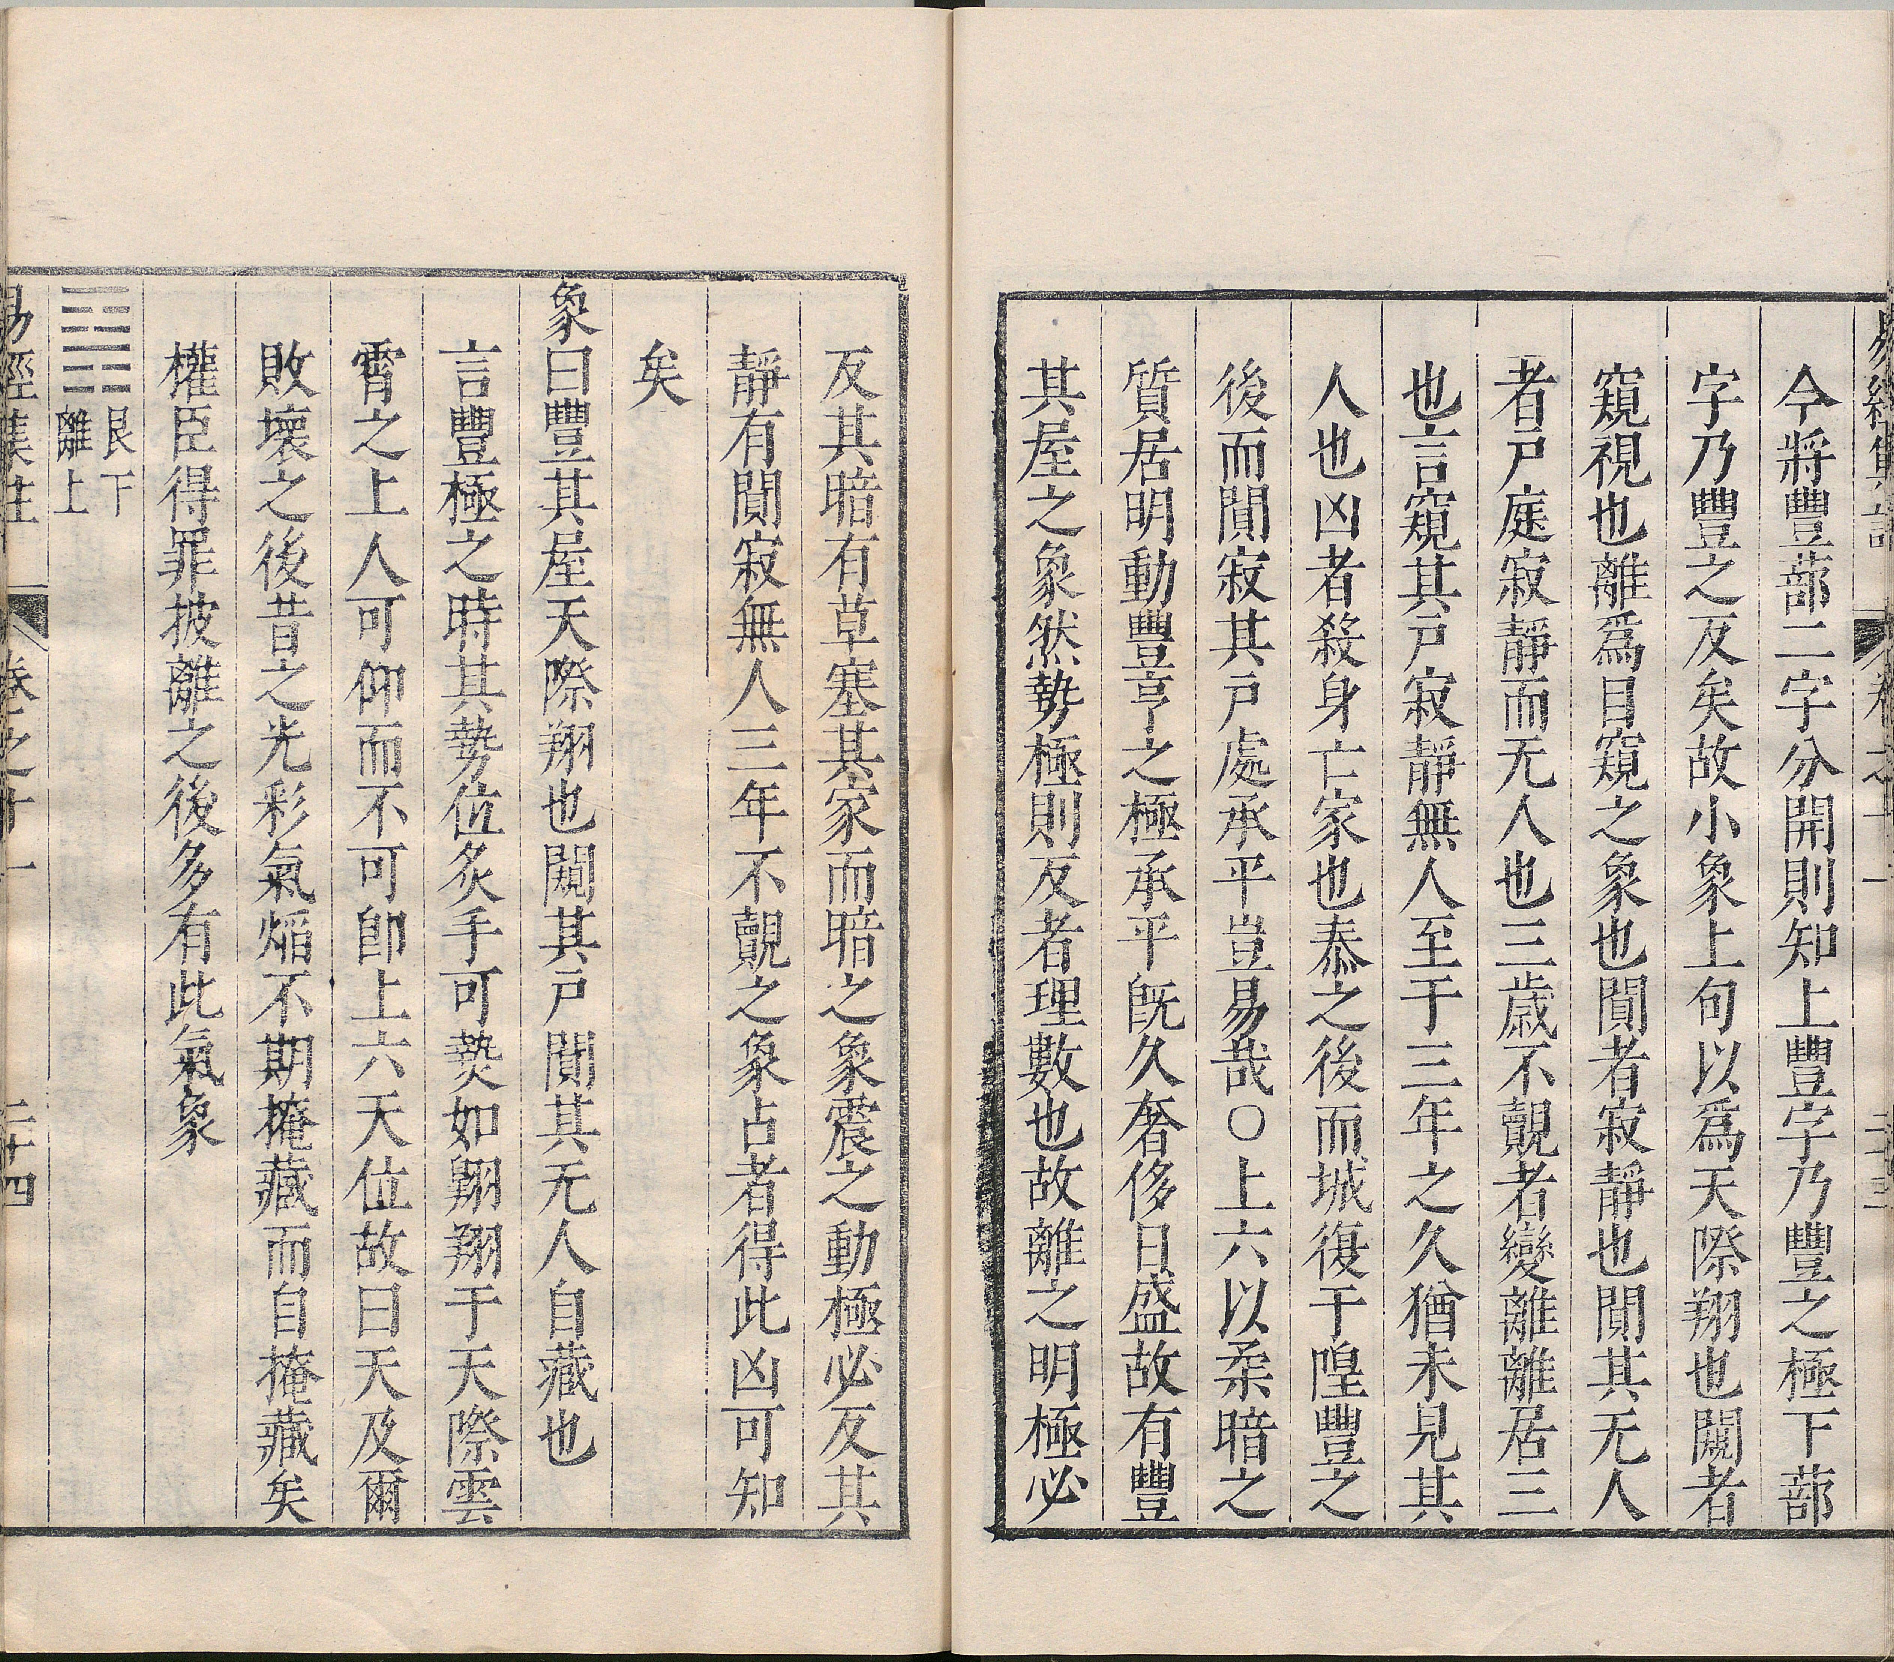 易經集註 卷之十一 二十三
今將豐蔀二字分開則知上豐字乃豐之極下蔀
字乃豐之反矣故小象上句以爲天際翔也闚者
窺視也離爲目窺之象也闃者寂靜也闃其无人
者戸庭寂靜而无人也三歲不覿者變離離居三
也言窺其戸寂靜無人至于三年之久猶未見其
人也凶者殺身亡家也泰之後而城復于隍豐之
後而闃寂其戸處承平豈易哉○上六以柔暗之
質居明動豐亨之極承平旣久奢侈日盛故有豐
其屋之象然勢極則反者理數也故離之明極必
反其暗有草塞其家而暗之象震之動極必反其
靜有闃寂無人三年不覿之象占者得此凶可知
矣
象曰豐其屋天際翔也闚其戸闃其无人自藏也
言豐極之時其勢位炙手可爇如翺翔于天際雲
霄之上人可仰而不可卽上六天位故曰天及爾
敗壞之後昔之光彩氣熖不期掩藏而自掩藏矣
權臣得罪披離之後多有此氣象
䷷艮下離上
易經集註 卷之十一 二十四